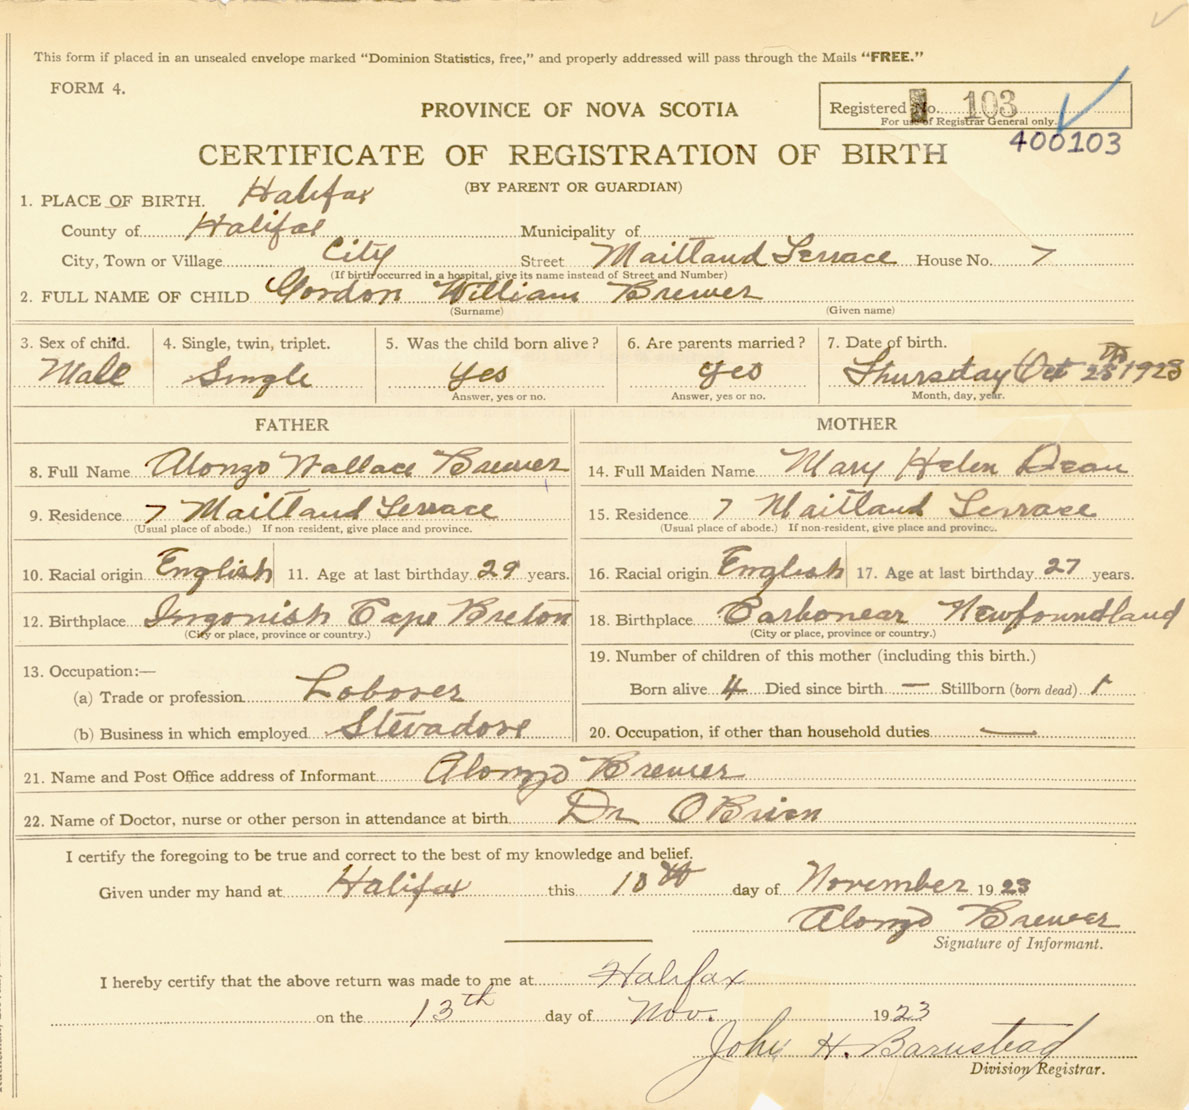 This form if placed in an unsealed envelope marked "Dominion Statistics, free," and properly addressed will pass through the Mails "FREE."
FORM 4.
Registered No. 103
For use of Registrar General only.
400103
PROVINCE OF NOVA SCOTIA
CERTIFICATE OF REGISTRATION OF BIRTH
(BY PARENT OR GUARDIAN)
1. PLACE OF BIRTH. Halifax
County of Halifax Municipality of
City, Town or Village City Street Maitland Terrace House No. 7
(If birth occurred in a hospital, give its name instead of Street and Number)
2. FULL NAME OF CHILD Gordon William Brewer
(Surname) (Given name)
3. Sex of child. 4. Single, twin, triplet. 5. Was the child born alive? 6. Are parents married? 7. Date of birth.
Male Single Yes Yes Thursday Oct 25th 1923
Answer, yes or no. Answer, yes or no. Month, day, year.
FATHER MOTHER
8. Full Name Alonzo Wallace Brewer 14. Full Maiden Name Mary Helen Dean
9. Residence 7 Maitland Terrace 15. Residence 7 Maitland Terrace
(Usual place of abode.) If non resident, give place and province. (Usual place of abode.) If non-resident, give place and province.
10. Racial origin English 11. Age at last birthday 29 years. 16. Racial origin English 17. Age at last birthday 27 years.
12. Birthplace Ingonish Cape Breton 18. Birthplace Carbonear Newfoundland
(City or place, province or country.) (City or place, province or country.)
13. Occupation:— 19. Number of children of this mother (including this birth.)
(a) Trade or profession Loborer Born alive 4 Died since birth — Stillborn (born dead) 1
(b) Business in which employed Stevadore 20. Occupation, if other than household duties —
21. Name and Post Office address of Informant Alonzo Brewer
22. Name of Doctor, nurse or other person in attendance at birth Dr OBrien
I certify the foregoing to be true and correct to the best of my knowledge and belief.
Given under my hand at Halifax this 10th day of November 1923
Alonzo Brewer
Signature of Informant.
I hereby certify that the above return was made to me at Halifax
on the 13th day of Nov. 1923
John H. Barnstead
Division Registrar.